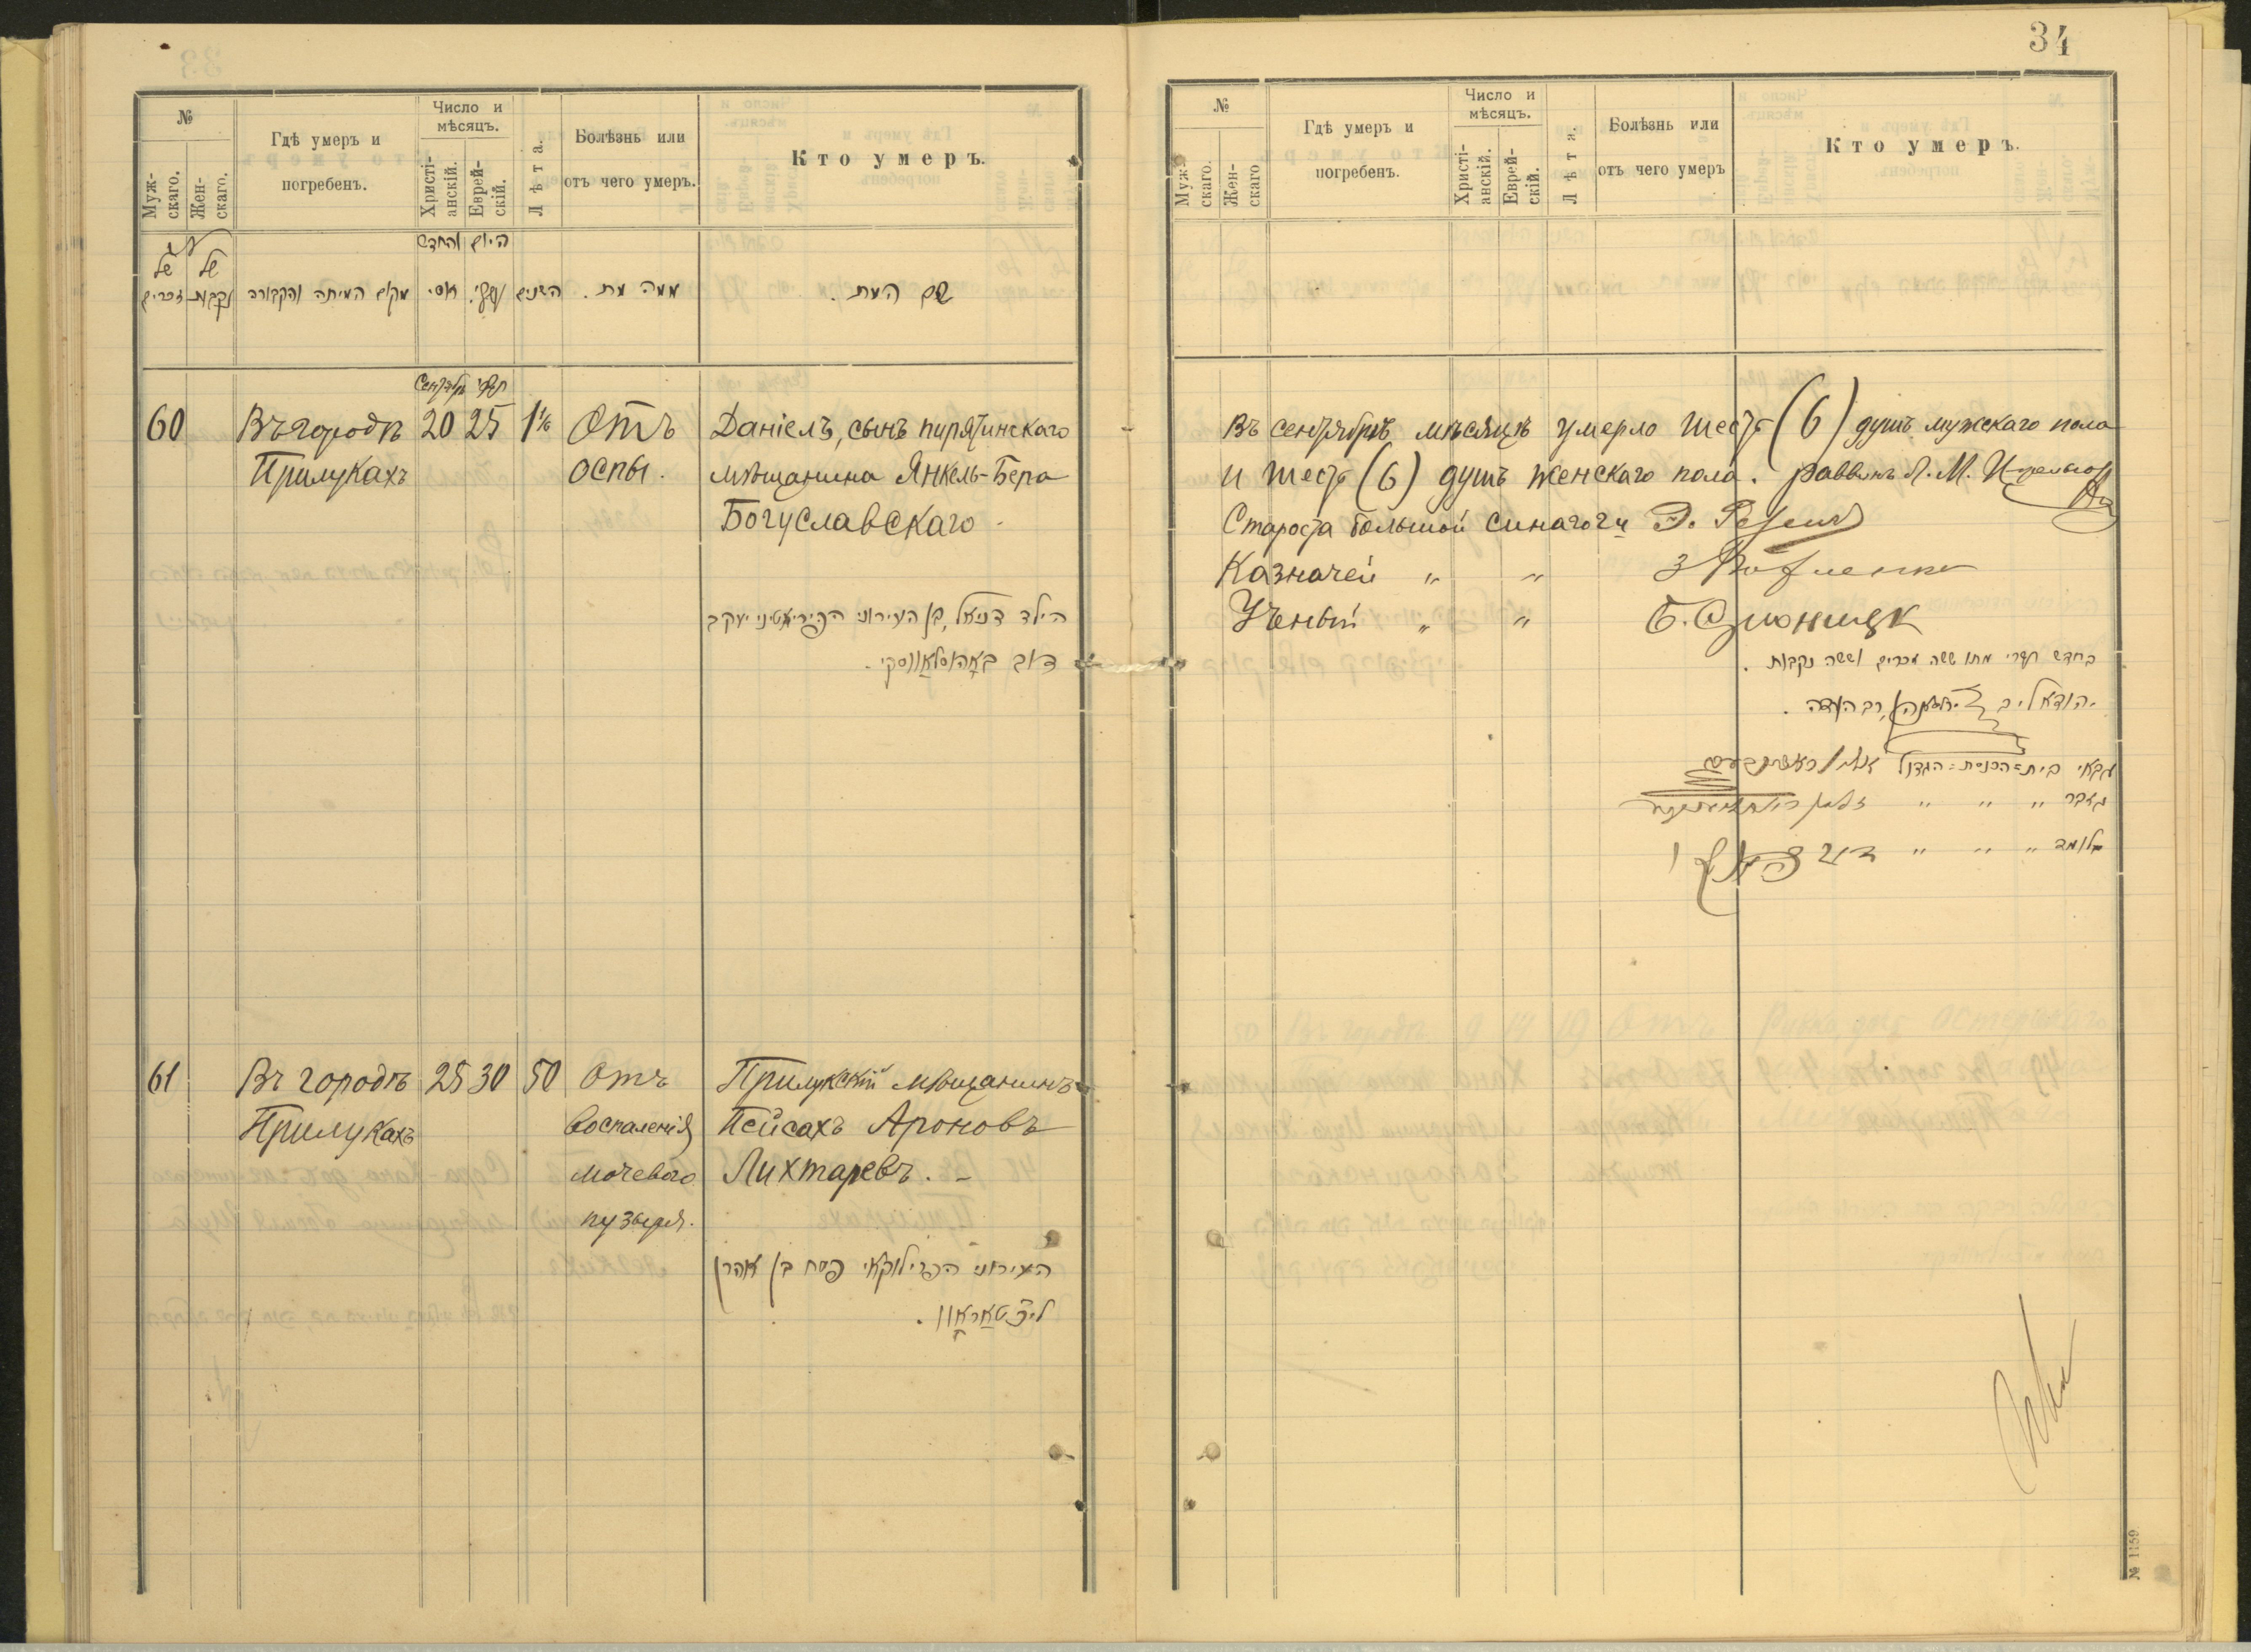 №
Муж-
скаго.
Жен-
скаго.
Гдѣ умеръ и
погребенъ.
Число и
мѣсяцъ.
Христі-
анскій.
Еврей-
скій.
Лѣта.
Болѣзнь или
отъ чего умеръ.
Кто умеръ.
היום והחדש
של
זכרים
של
נקבות
מקום המיתה והקבורה
השנים
ממה מת.
שם המת.
Сентябрь תשרי
60 Въ городѣ 20 25 1 1/6 Отъ Даніелъ, сынъ пирятинскаго
Прилукахъ оспы. мѣщанина Янкель-Бера
Богуславскаго.
הילד דניאל, בן העירוני הפיריאטיני יעקב
דוב באהוסלאווסקי.
61 Въ городѣ 25 30 50 Отъ Прилукскій мѣщанинъ
Прилукахъ воспаленія Пейсахъ Ароновъ
мочеваго Лихтаревъ.
пузыря.
העירוני הפרילוקאי פסח בן אהרן
ליכטאראוו.
34
№
Муж-
скаго.
Жен-
скаго
Гдѣ умеръ и
погребенъ.
Число и
мѣсяцъ.
Христі-
анскій.
Еврей-
скій.
Лѣта.
Болѣзнь или
отъ чего умеръ
Кто умеръ.
Въ сентябрѣ мѣсяцѣ умерло шесть (6) душъ мужскаго пола
и шесть (6) душъ женскаго пола. Раввинъ Л. М.
Староста большой синагоги Э.
Казначей " " З
Ученый " " Б.
בחדש תשרי מתו ששה זכרים וששה נקבות.
יהודא ליב
גבאי בית-הכנסת-הגדול
גזבר " " " זלמן
מלומד " " " דוב
№ 1159